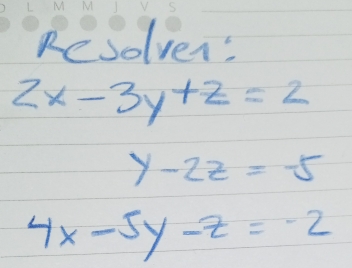 D L M M J V S
Resolver:
2x-3y+z=2
y-2z=-5
4x-5y-z=-2